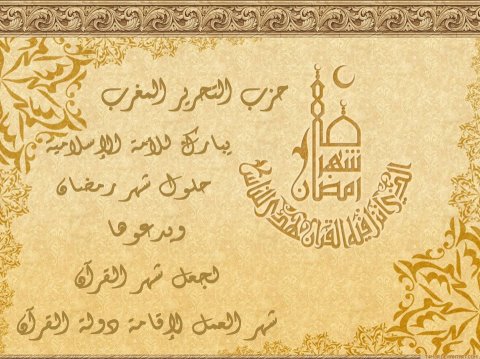 حزب التحرير المغرب
يبارك للأمة الإسلامية
حلول شهر رمضان
ويدعوها
لجعل شهر القرآن
شهر العمل لإقامة دولة القرآن
شهر
رمضان
الذي أنزل فيه القرآن هدى للناس